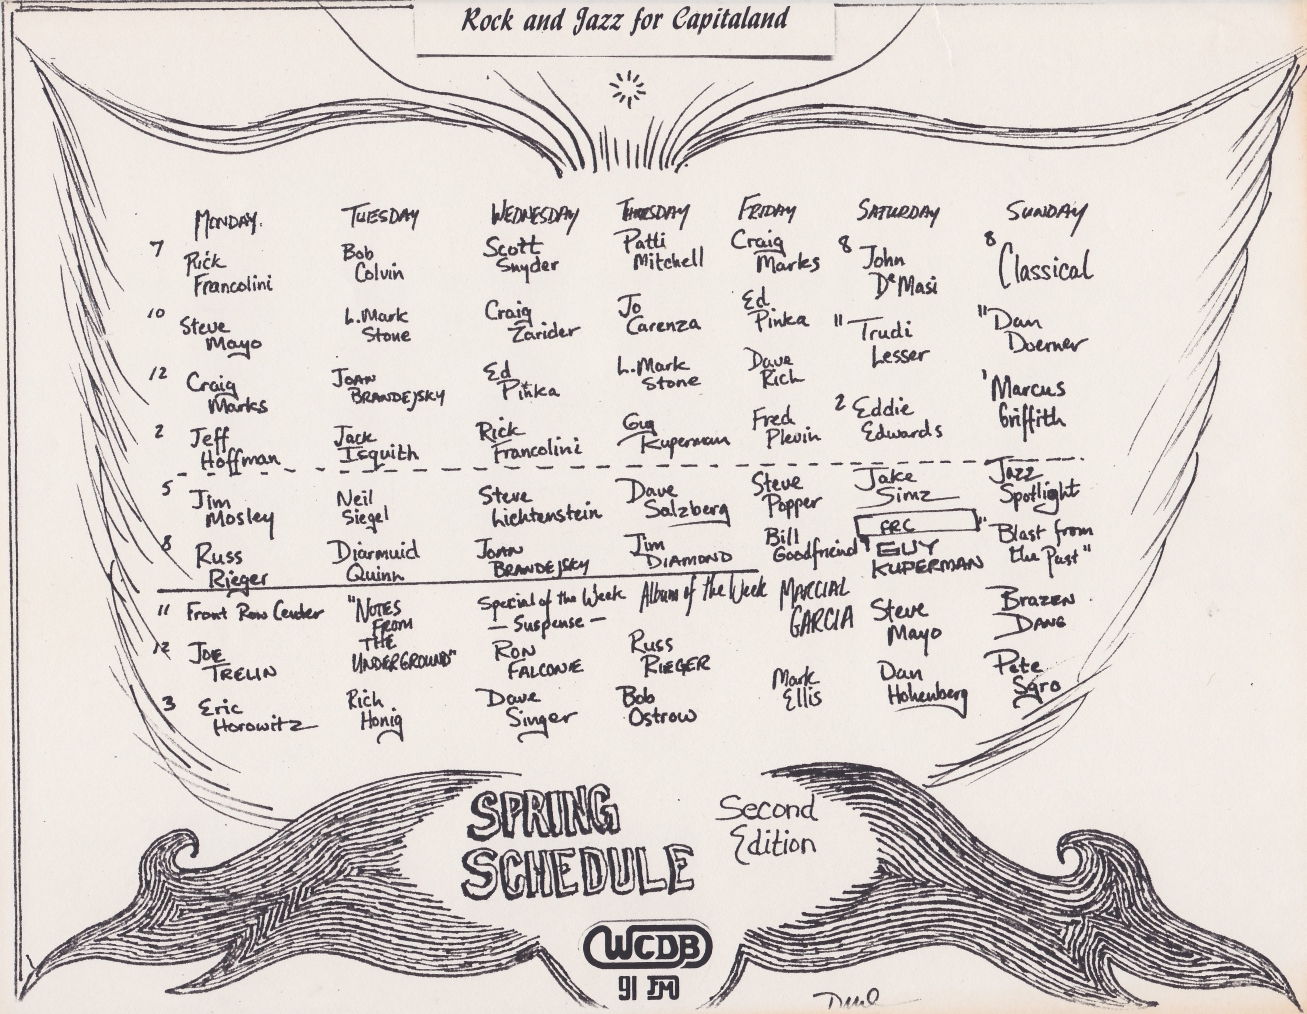 Rock and Jazz for Capitaland
MONDAY. TUESDAY WEDNESDAY THURSDAY FRIDAY SATURDAY SUNDAY
7 Rick Bob Scott Patti Craig 8 John 8 Classical
Francolini Colvin Snyder Mitchell Marks DeMasi
10 Steve L. Mark Craig Jo Ed 11 Trudi 11 Dan
Mayo Stone Zarider Carenza Pinka Lesser Doerner
12 Craig JOAN Ed L. Mark Dave 1 Marcus
Marks BRANDEJSKY Pinka Stone Rich Griffith
2 Jeff Jack Rick Guy Fred 2 Eddie
Hoffman Isquith Francolini Kuperman Plevin Edwards
5 Jim Neil Steve Dave Steve Jake Jazz
Mosley Siegel Lichtenstein Salzberg Popper Simz Spotlight
8 Russ Diarmuid JOAN Jim Bill GUY "Blast from
Rieger Quinn BRANDEJSKY DIAMOND Goodfriend KUPERMAN the Past"
11 Front Row Center "NOTES Special of the Week Album of the Week MARCIAL Steve BRAZEN
FROM — Suspense — GARCIA Mayo DANG
THE
UNDERGROUND"
12 JOE RON Russ Mark Dan Pete
TRELIN FALCONE RIEGER Ellis Hohenberg Sgro
3 Eric Rich Dave Bob
Horowitz Honig Singer Ostrow
SPRING Second
SCHEDULE Edition
WCDB
91 FM